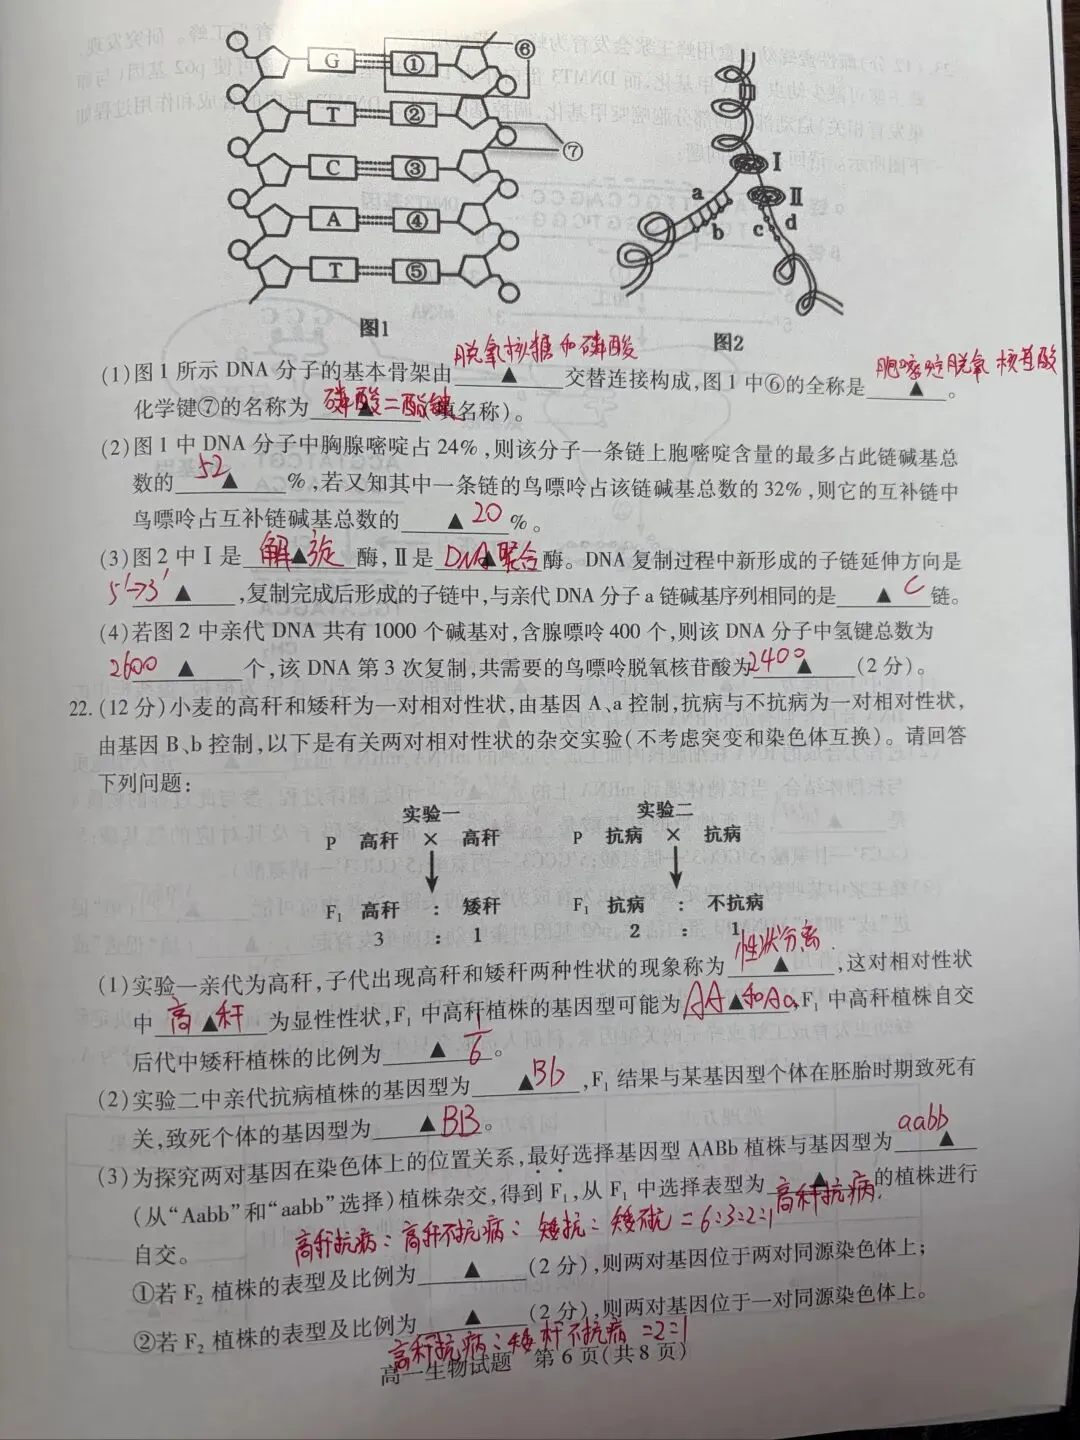 G ① ⑥
T ② ⑦
C ③
A ④
T ⑤
Ⅰ
Ⅱ
a
b
c
d
图1
图2
脱氧核糖和磷酸
(1)图1所示DNA分子的基本骨架由▲交替连接构成,图1中⑥的全称是▲。
胞嘧啶脱氧核苷酸
化学键⑦的名称为▲(填名称)。
磷酸二酯键
(2)图1中DNA分子中胸腺嘧啶占24%,则该分子一条链上胞嘧啶含量的最多占此链碱基总
数的52▲%,若又知其中一条链的鸟嘌呤占该链碱基总数的32%,则它的互补链中
鸟嘌呤占互补链碱基总数的▲20%。
(3)图2中Ⅰ是解▲旋酶,Ⅱ是DNA▲聚合酶。DNA复制过程中新形成的子链延伸方向是
5'→3'▲,复制完成后形成的子链中,与亲代DNA分子a链碱基序列相同的是▲C链。
(4)若图2中亲代DNA共有1000个碱基对,含腺嘌呤400个,则该DNA分子中氢键总数为
2600▲个,该DNA第3次复制,共需要的鸟嘌呤脱氧核苷酸为2400▲(2分)。
22.(12分)小麦的高秆和矮秆为一对相对性状,由基因A、a控制,抗病与不抗病为一对相对性状,
由基因B、b控制,以下是有关两对相对性状的杂交实验(不考虑突变和染色体互换)。请回答
下列问题:
实验一 实验二
P 高秆 × 高秆 P 抗病 × 抗病
F₁ 高秆 : 矮秆 F₁ 抗病 : 不抗病
3 : 1 2 : 1
性状分离
(1)实验一亲代为高秆,子代出现高秆和矮秆两种性状的现象称为▲,这对相对性状
中高▲秆为显性性状,F₁中高秆植株的基因型可能为AA▲和Aa,F₁中高秆植株自交
后代中矮秆植株的比例为▲1/6。
(2)实验二中亲代抗病植株的基因型为▲Bb,F₁结果与某基因型个体在胚胎时期致死有
关,致死个体的基因型为▲BB。
(3)为探究两对基因在染色体上的位置关系,最好选择基因型AABb植株与基因型为▲
aabb
(从“Aabb”和“aabb”选择)植株杂交,得到F₁,从F₁中选择表型为▲的植株进行
高秆抗病
自交。
高秆抗病:高秆不抗病:矮抗:矮不抗=6:3:2:1
①若F₂植株的表型及比例为▲(2分),则两对基因位于两对同源染色体上;
②若F₂植株的表型及比例为▲(2分),则两对基因位于一对同源染色体上。
高秆抗病:矮秆不抗病=2:1
高一生物试题 第6页(共8页)